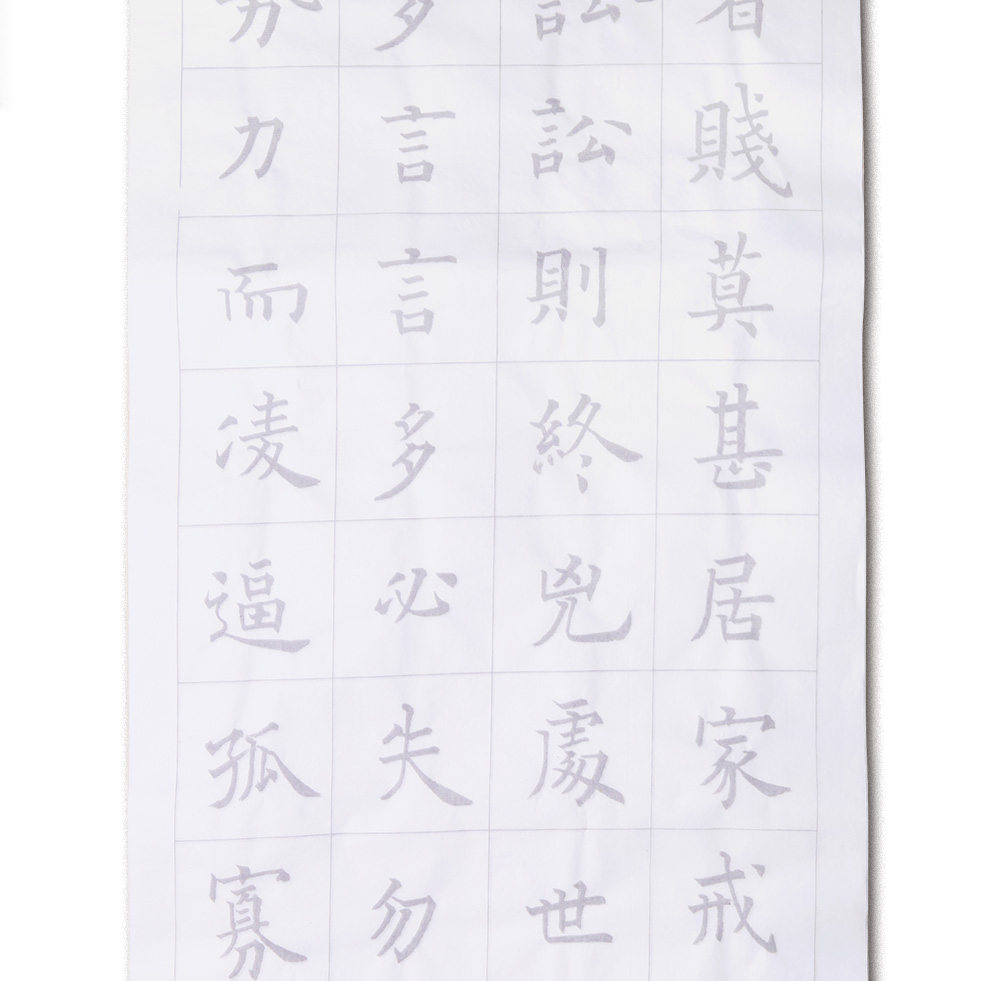 者賤莫甚居家戒
訟訟則終兇處世
多言言多必失勿
力而凌逼孤寡